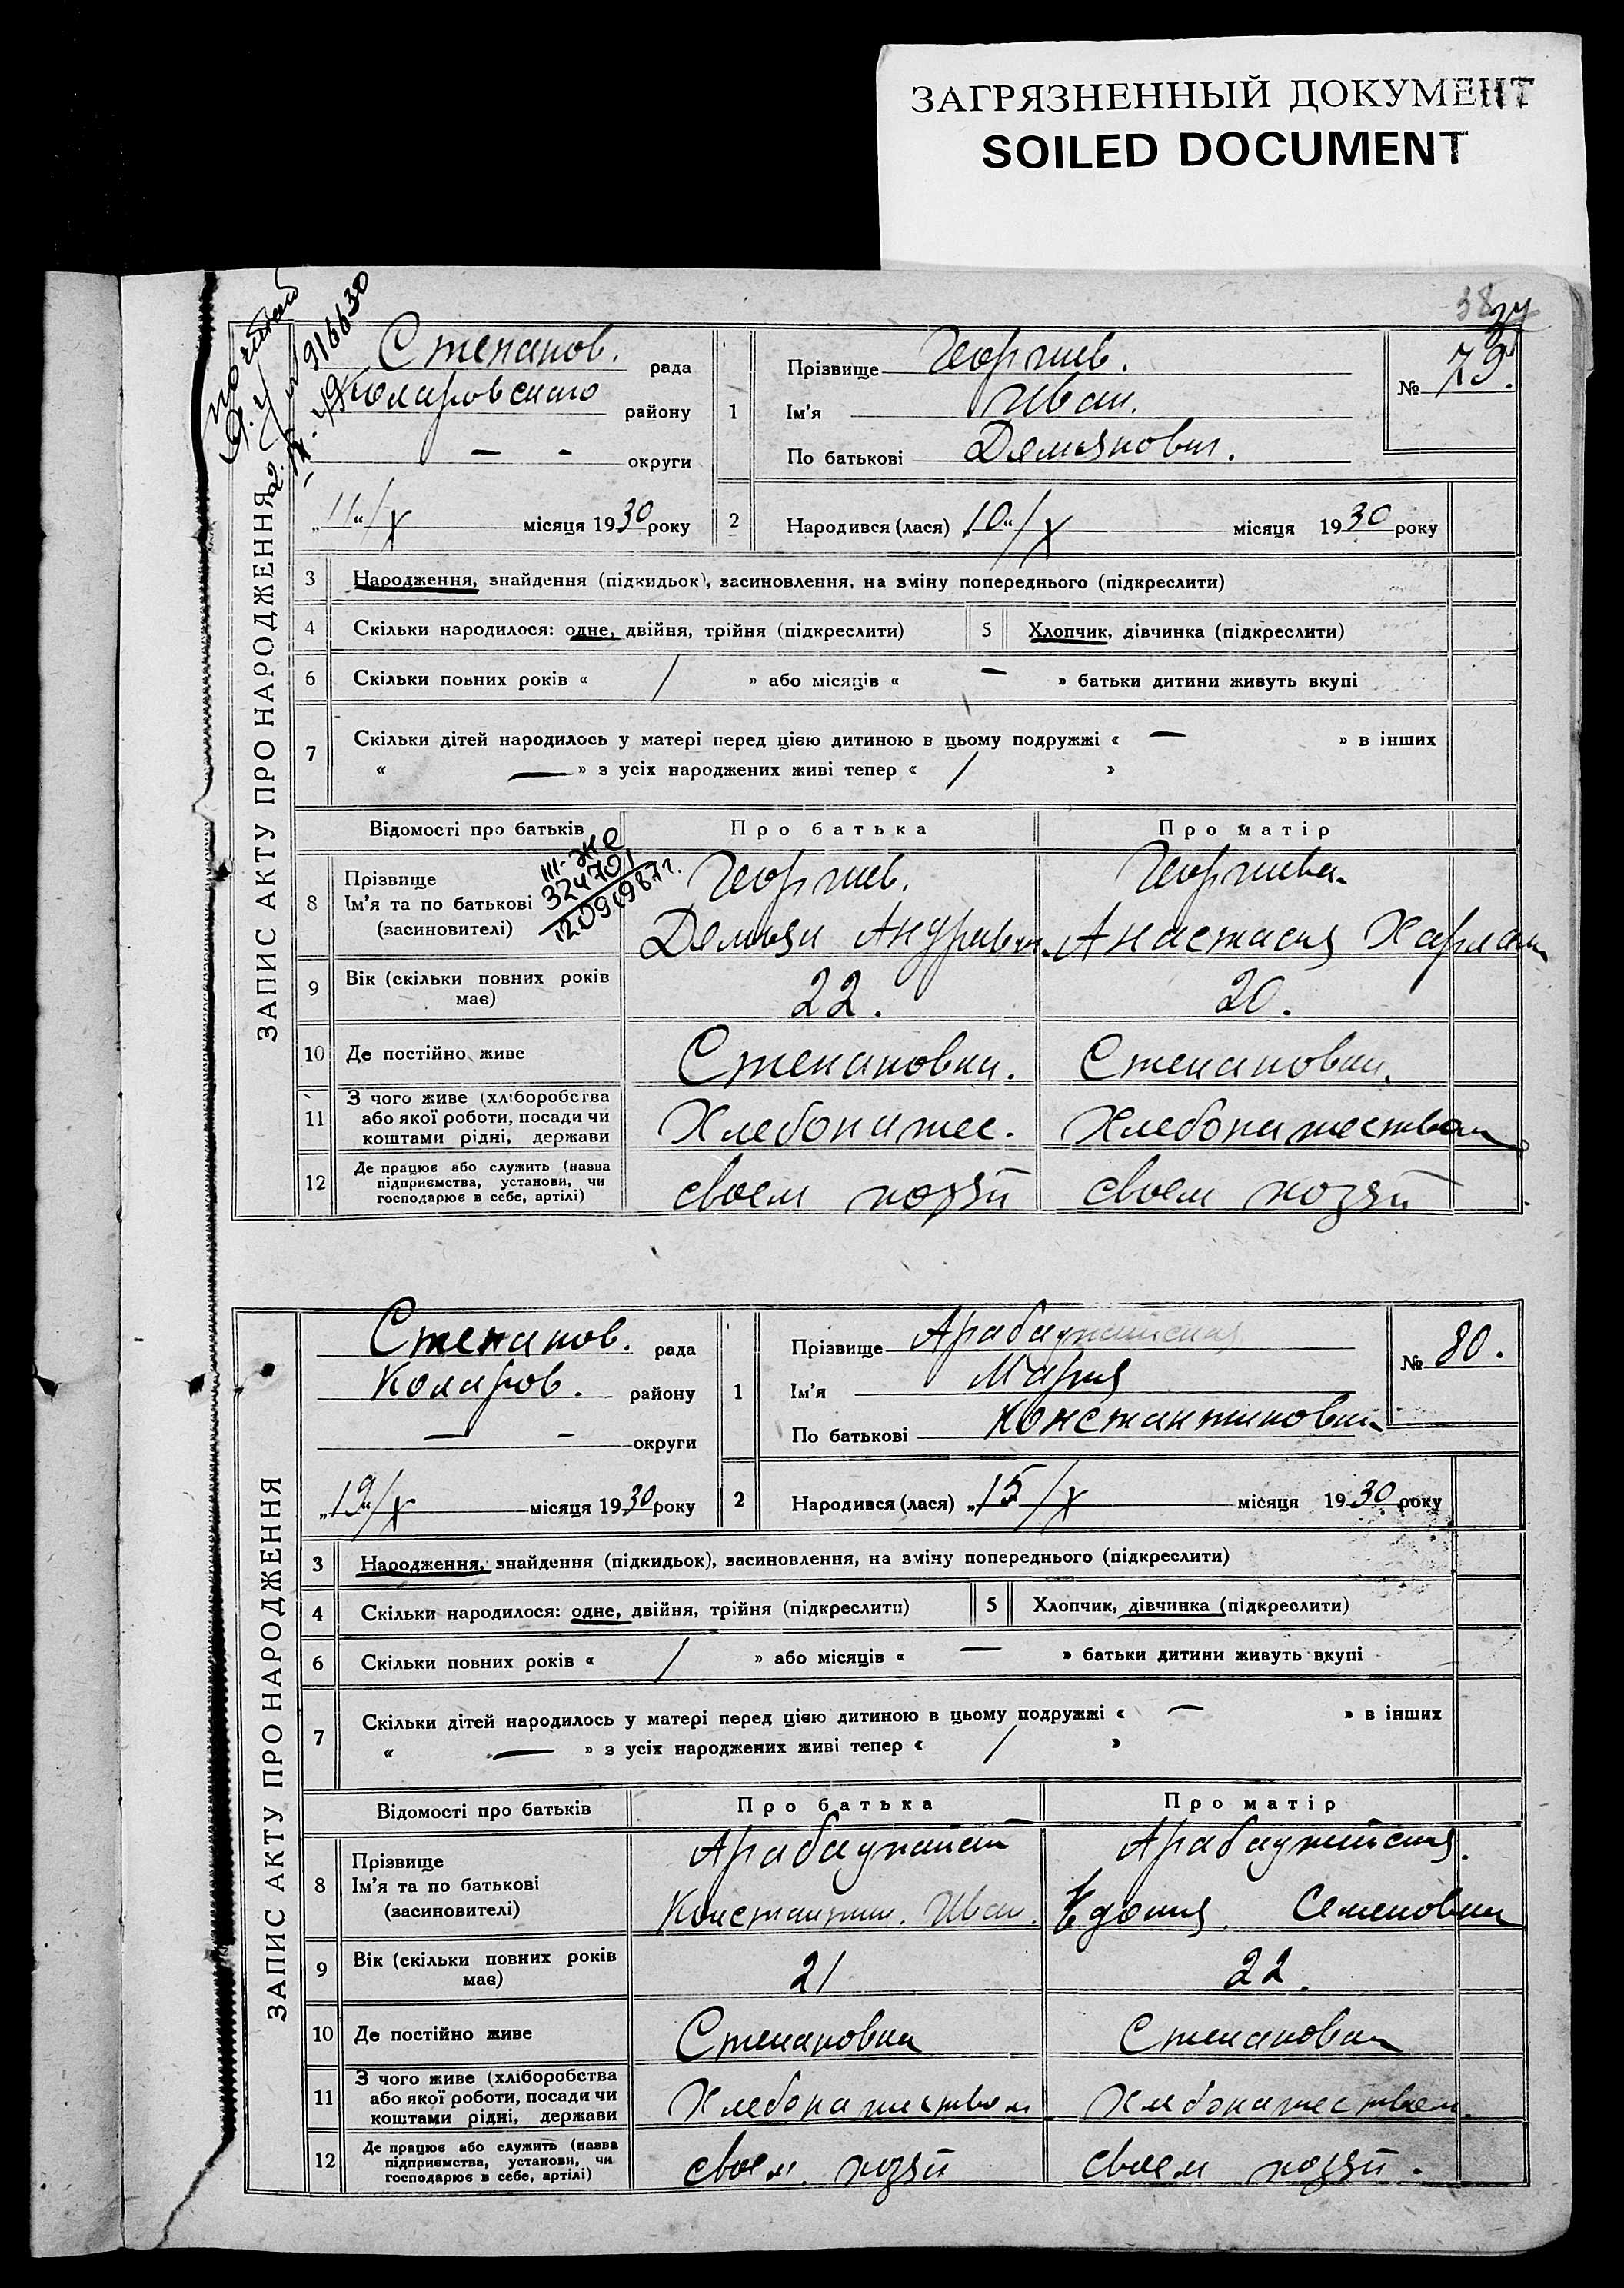 ЗАГРЯЗНЕННЫЙ ДОКУМЕНТ
SOILED DOCUMENT
38
ЗАПИС АКТУ ПРО НАРОДЖЕННЯ
916630
Степанов. рада
Коларовского району
— - округи
„11“/X місяця 1930 року
1 Прізвище Георгиев.
Ім'я Иван.
По батькові Демьянович.
№ 79.
2 Народився (лася) „10“/X місяця 1930 року
3 Народження, знайдення (підкидьок), засиновлення, на зміну попереднього (підкреслити)
4 Скільки народилося: одне, двійня, трійня (підкреслити) 5 Хлопчик, дівчинка (підкреслити)
6 Скільки повних років « 1 » або місяців « — » батьки дитини живуть вкупі
7 Скільки дітей народилось у матері перед цією дитиною в цьому подружжі « — » в інших
« — » з усіх народжених живі тепер « 1 »
Відомості про батьків Про батька Про матір
III-ЖС
324701
12.09.1987г.
8 Прізвище Георгиев. Георгиева.
Ім'я та по батькові
(засиновителі) Демьян Андреевич. Анастасия Харлам
9 Вік (скільки повних років
має) 22. 20.
10 Де постійно живе Степановка. Степановка.
11 З чого живе (хліборобства
або якої роботи, посади чи
коштами рідні, держави Хлебопашес. Хлебопашеством
12 Де працює або служить (назва
підприємства, установи, чи
господарює в себе, артілі) своем хозяй своем хозяй
ЗАПИС АКТУ ПРО НАРОДЖЕННЯ
Степанов. рада
Коларов. району
— - округи
„19“/X місяця 1930 року
1 Прізвище Арабаджийская
Ім'я Мария
По батькові Константиновна
№ 80.
2 Народився (лася) „15/X місяця 1930 року
3 Народження, знайдення (підкидьок), засиновлення, на зміну попереднього (підкреслити)
4 Скільки народилося: одне, двійня, трійня (підкреслити) 5 Хлопчик, дівчинка (підкреслити)
6 Скільки повних років « 1 » або місяців « — » батьки дитини живуть вкупі
7 Скільки дітей народилось у матері перед цією дитиною в цьому подружжі « — » в інших
« — » з усіх народжених живі тепер « 1 »
Відомості про батьків Про батька Про матір
8 Прізвище Арабаджийский Арабаджийская.
Ім'я та по батькові
(засиновителі) Константин. Иван. Семеновна
9 Вік (скільки повних років
має) 21 22.
10 Де постійно живе Степановка Степановка
11 З чого живе (хліборобства
або якої роботи, посади чи
коштами рідні, держави Хлебопашеством Хлебопашеством.
12 Де працює або служить (назва
підприємства, установи, чи
господарює в себе, артілі) своем. хозяй своем хозяй.